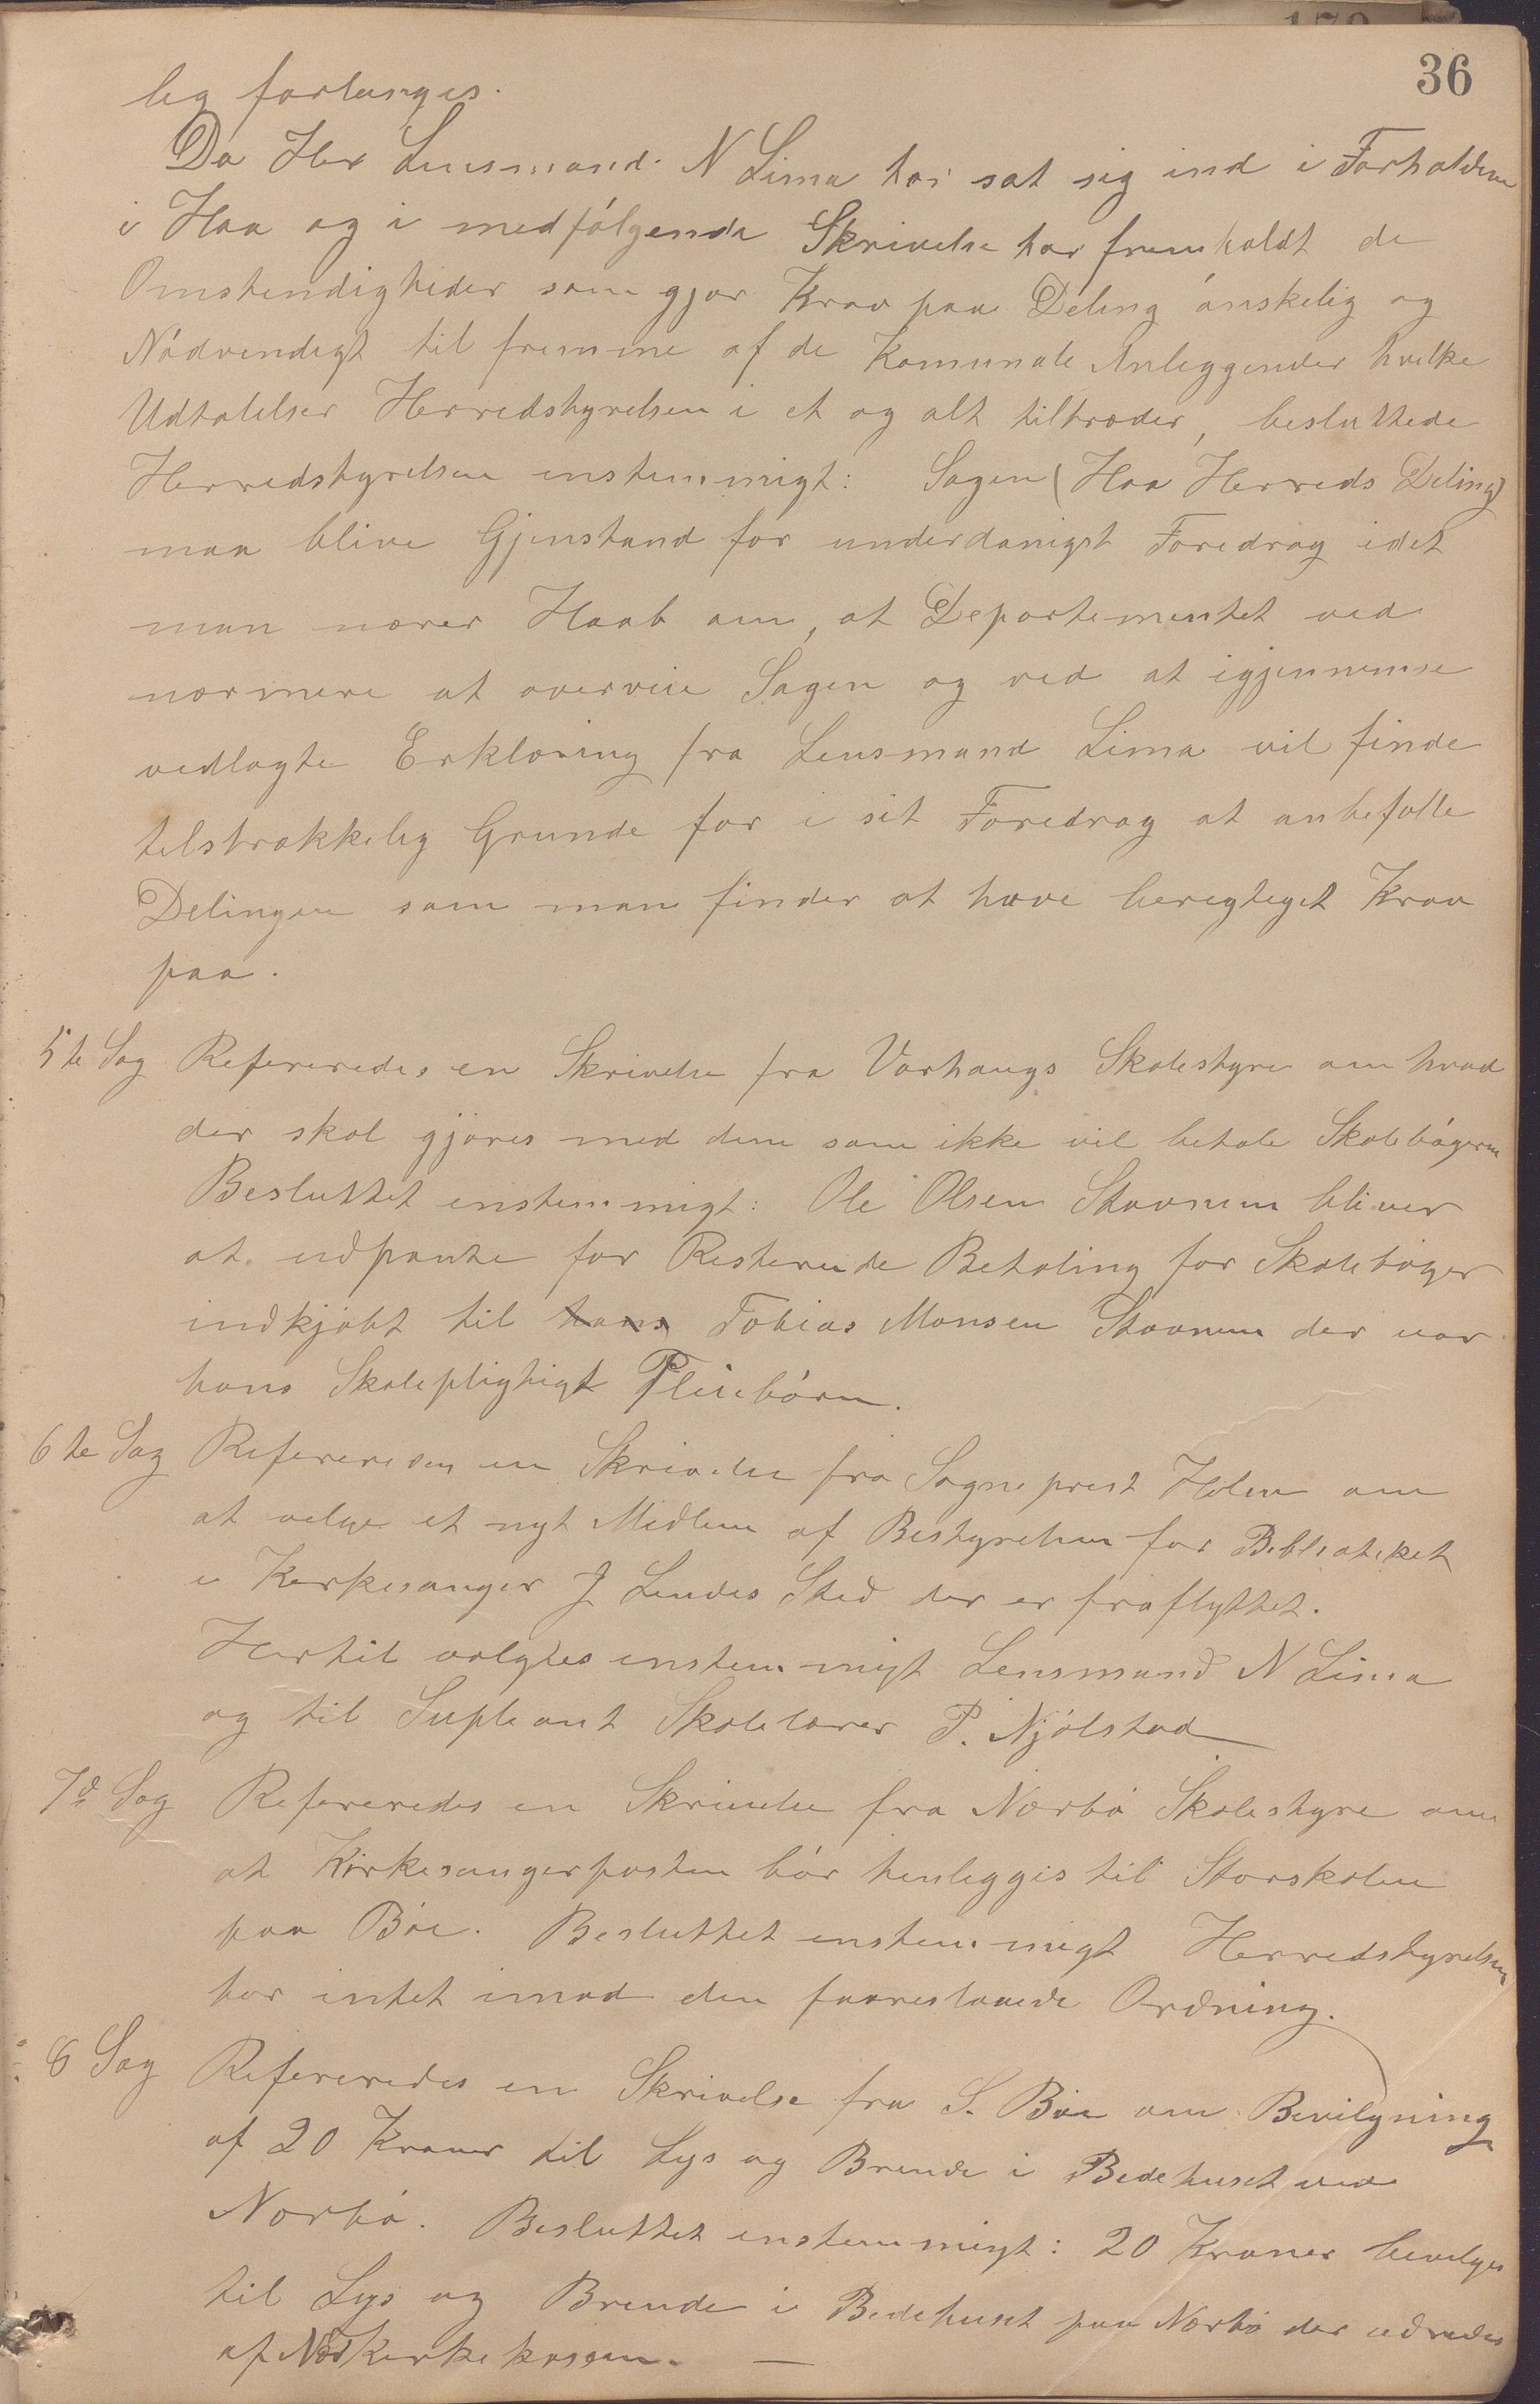 36
lig forlanges.
Da Her Lensmand N Lima har sat sig ind i Forholdene
i Haa og i medfølgende Skrivelse har fremholdt de
Omstendigheder som gjør Krav paa Deling ønskelig og
Nødvendigt til fremme af de Komunale Anleggender hvilke
Udtalelser Herredstyrelsen i et og alt tiltræder, besluttede
Herredstyrelsen enstemmigt: Sagen (Haa Herreds Deling)
maa blive Gjenstand for underdanigst Foredrag idet
man nærer Haab om, at Departementet ved
nærmere at overveie Sagen og ved at igjennemse
vedlagte Erklæring fra Lensmand Lima vil finde
tilstrækkelig Grunde for i sit Foredrag at anbefalle
Delingen som man finder at have beregtiget Krav
paa.
5te Sag Refereredes en Skrivelse fra Varhaugs Skolestyre om hvad
der skal gjøres med dem som ikke vil betale Skolebøgerne
Besluttet enstemmigt: Ole Olsen Stavnem bliver
at udpante for Resterende Betaling for Skolebøger
indkjøbt til hans Tobias Monsen Stavnem der var
hans Skolepligtigt Pleiebørn.
6te Sag Refereredes en Skrivelse fra Sogneprest Holm om
at velge et nyt Medlem af Bestyrelsen for Biblioteket
i Kirkesanger J Lendes Sted der er fraflyttet.
Hertil valgtes enstemmigt Lensmand N Lima
og til Supleant Skolelærer P. Njølstad
7de Sag Refereredes en Skrivelse fra Nærbø Skolestyre om
at Kirkesangerposten bør henlegges til Storskolen
paa Bøe. Besluttet enstemmigt Herredstyrelsen
har intet imod den foreslaaede Ordning.
8 Sag Refereredes en Skrivelse fra S. Bøe om Bevilgning
af 20 Kroner til Lys og Brende i Bedehuset ved
Nærbø. Besluttet enstemmigt: 20 Kroner bevilges
til Lys og Brende i Bedehuset paa Nærbø der udredes
af Kirkekassen.